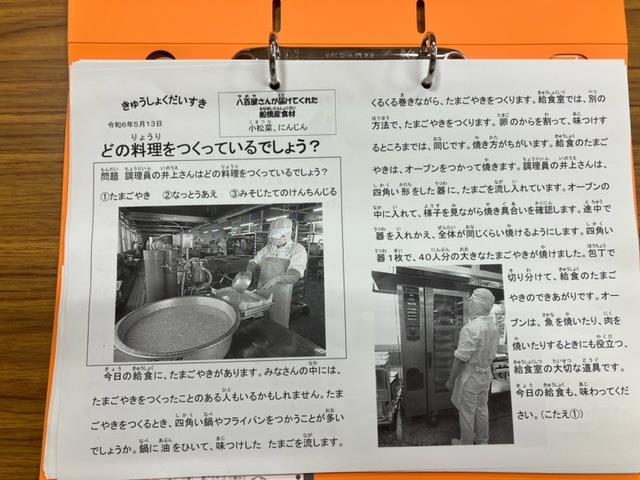 きゅうしょくだいすき
令和6年5月13日
八百屋さんが届けてくれた
船橋産食材
小松菜、にんじん
どの料理をつくっているでしょう？
問題 調理員の井上さんはどの料理をつくっているでしょう？
①たまごやき ②なっとうあえ ③みそしたてのけんちんじる
今日の給食に、たまごやきがあります。みなさんの中には、
たまごやきをつくったことのある人もいるかもしれません。たま
ごやきをつくるとき、四角い鍋やフライパンをつかうことが多い
でしょうか。鍋に油をひいて、味つけした たまごを流します。
くるくる巻きながら、たまごやきをつくります。給食室では、別の
方法で、たまごやきをつくります。卵のからを割って、味つけす
るところまでは、同じです。焼き方がちがいます。給食のたまご
やきは、オーブンをつかって焼きます。調理員の井上さんは、
四角い形をした器に、たまごを流し入れています。オーブンの
中に入れて、様子を見ながら焼き具合いを確認します。途中で
器を入れかえ、全体が同じくらい焼けるようにします。四角い
器1枚で、40人分の大きなたまごやきが焼けました。包丁で
切り分けて、給食のたまご
やきのできあがりです。オー
ブンは、魚を焼いたり、肉を
焼いたりするときにも役立つ、
給食室の大切な道具です。
今日の給食も、味わってくだ
さい。（こたえ①）